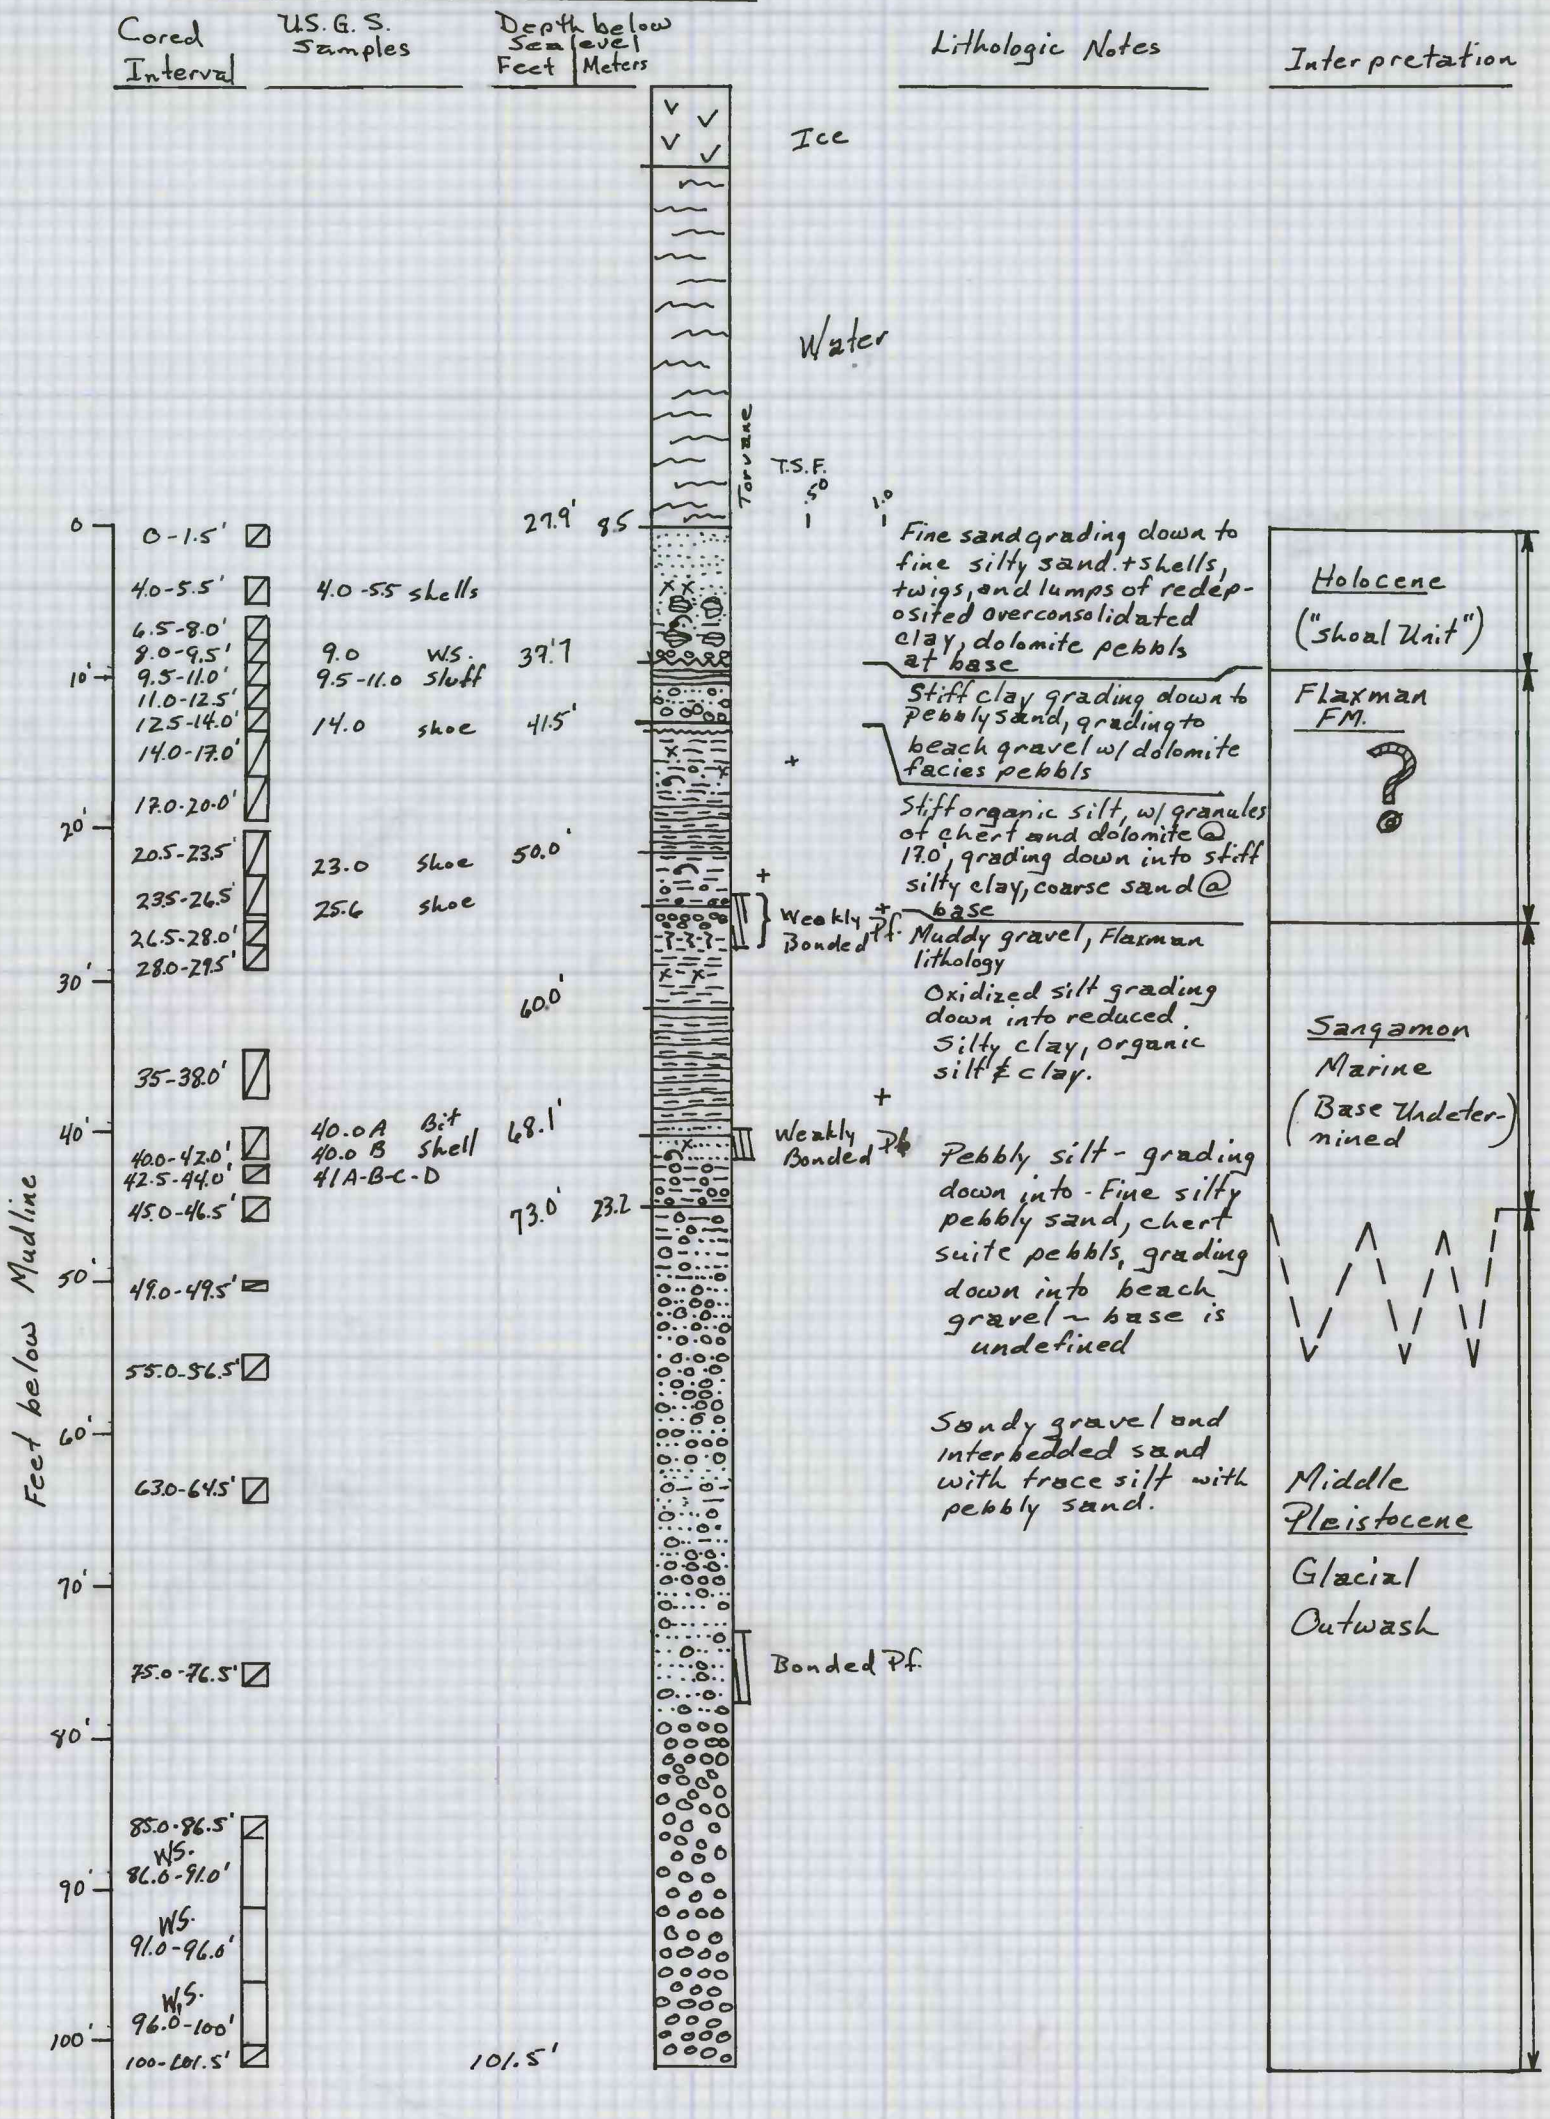 Cored
Interval
U.S.G.S.
Samples
Depth below
Sea level
Feet Meters
Lithologic Notes
Interpretation
Ice
Water
Torvane
T.S.F.
.50
1.0
Feet below Mudline
0
10'
20'
30'
40'
50'
60'
70'
80'
90'
100'
0-1.5'
4.0-5.5'
6.5-8.0'
8.0-9.5'
9.5-11.0'
11.0-12.5'
12.5-14.0'
14.0-17.0'
17.0-20.0'
20.5-23.5'
23.5-26.5'
26.5-28.0'
28.0-29.5'
35-38.0'
40.0-42.0'
42.5-44.0'
45.0-46.5'
49.0-49.5'
55.0-56.5'
63.0-64.5'
75.0-76.5'
85.0-86.5'
W.S.
86.0-91.0'
W.S.
91.0-96.0'
W.S.
96.0-100'
100-101.5'
4.0-5.5 shells
9.0 W.S.
9.5-11.0 Sluff
14.0 shoe
23.0 Shoe
25.6 shoe
40.0A Bit
40.0 B Shell
41A-B-C-D
27.9' 8.5
37.'7
41.5'
50.0'
60.0'
68.1'
73.0' 23.2
101.5'
Weakly
Bonded Pf.
Weakly
Bonded
Bonded Pf.
Fine sand grading down to
fine silty sand. + shells,
twigs, and lumps of redep-
osited overconsolidated
clay, dolomite pebbls
at base
Stiff clay grading down to
Pebbly sand, grading to
beach gravel w/ dolomite
facies pebbls
Stiff organic silt, w/ granules
of chert and dolomite @
17.0', grading down into stiff
silty clay, coarse sand @
base
Muddy gravel, Flaxman
lithology
Oxidized silt grading
down into reduced
silty clay, organic
silt & clay.
Pebbly silt - grading
down into - Fine silty
pebbly sand, chert
suite pebbls, grading
down into beach
gravel ~ base is
undefined
Sandy gravel and
interbedded sand
with trace silt with
pebbly sand.
Holocene
("shoal Unit")
Flaxman
FM.
?
Sangamon
Marine
(Base Undeter-
mined)
Middle
Pleistocene
Glacial
Outwash